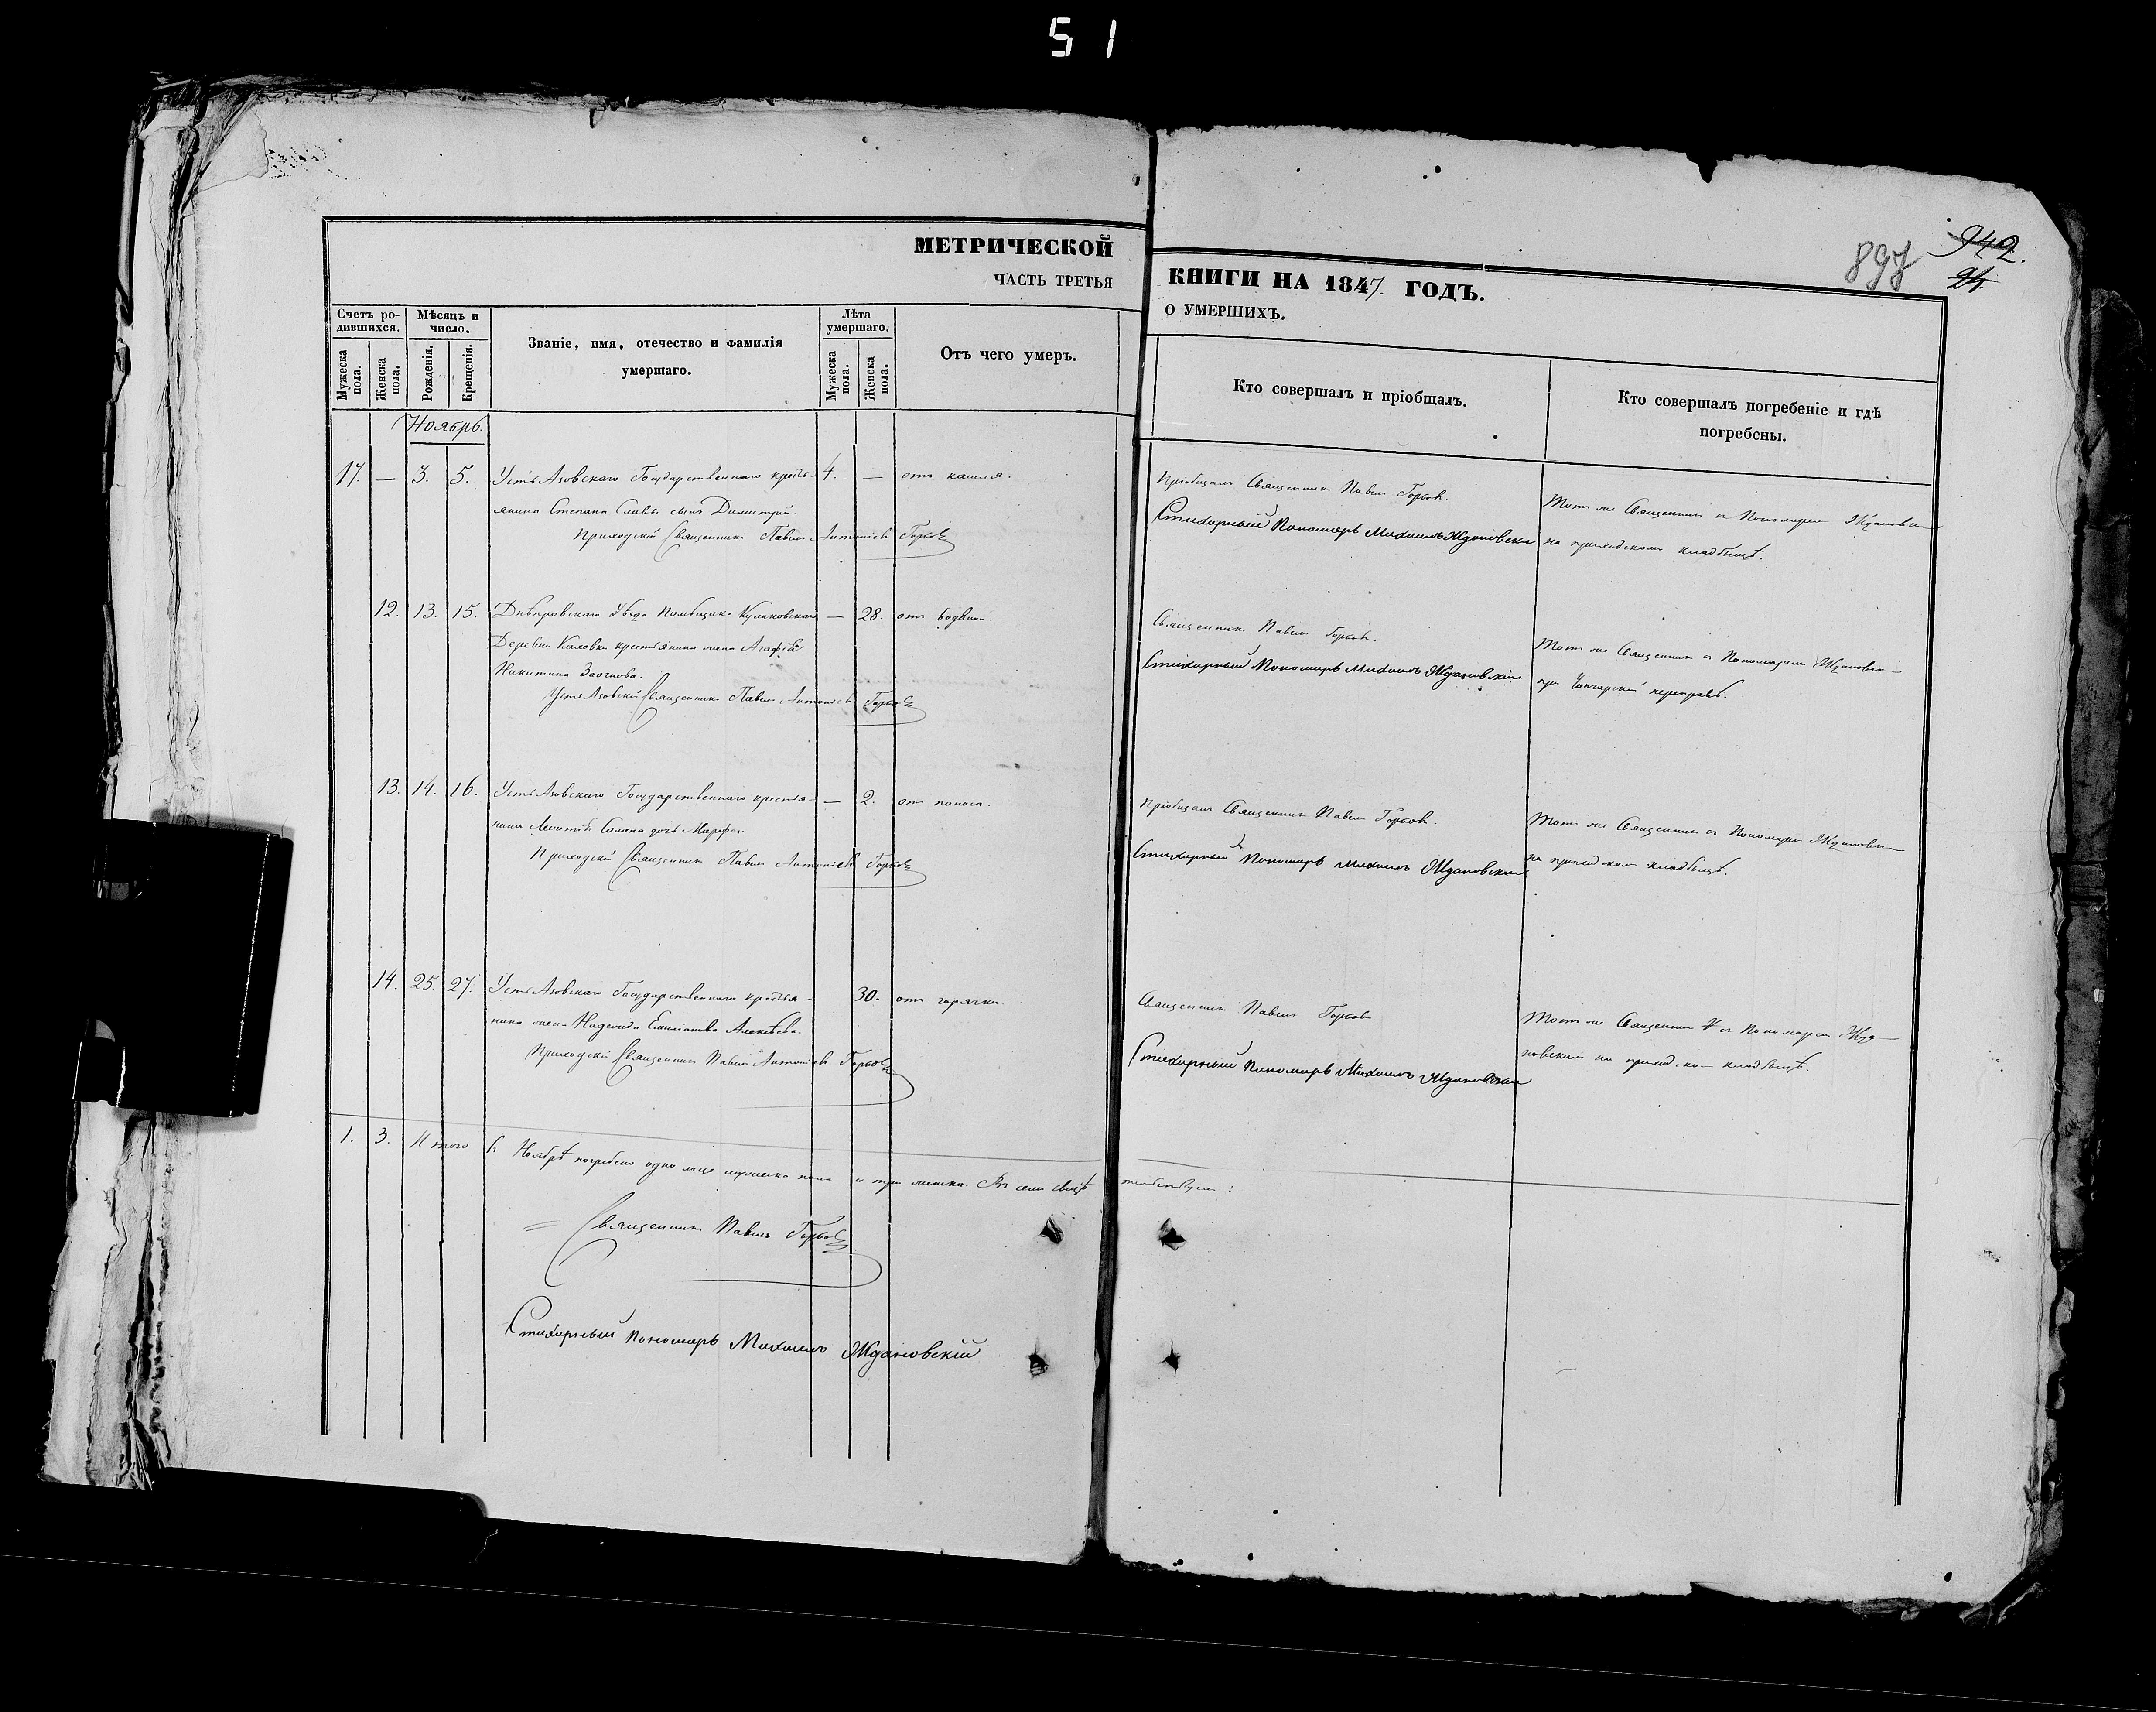 51
МЕТРИЧЕСКОЙ
ЧАСТЬ ТРЕТЬЯ
КНИГИ НА 1847. ГОДЪ.
О УМЕРШИХЪ.
897
942.
24.
Счетъ родившихся.
Мужеска пола.
Женска пола.
Мѣсяцъ и число.
Рожденія.
Крещенія.
Званіе, имя, отечество и фамилія
умершаго.
Лѣта умершаго.
Мужеска пола.
Женска пола.
Отъ чего умеръ.
Кто совершалъ и пріобщалъ.
Кто совершалъ погребеніе и гдѣ
погребены.
Ноябрь.
17. — 3. 5. Усть Азовскаго Государственнаго кресть- 4. — отъ кашля.
янина Степана сынъ Димитрій.
Приходскій Священникъ Павелъ Антоніевъ Горбов
Пріобщалъ Священникъ Павелъ Горбов.
Стихарный Пономарь Михаилъ Ждановскій
Тотъ же Священникъ съ Пономаремъ
на приходскомъ кладбищѣ.
12. 13. 15. Днѣпровскаго Уѣзда Помѣщика Куликовскаго — 28. отъ
Деревни крестьянина жена Агафія
Никитина
Усть Азовскій Священникъ Павелъ Антоніевъ Горбов
Священникъ Павелъ Горбов.
Стихарный Пономарь Михаилъ Ждановскій
Тотъ же Священникъ съ Пономаремъ
при Чонгарской переправѣ.
13. 14. 16. Усть Азовскаго Государственнаго крестья- — 2. отъ поноса.
нина дочь Марфа.
Приходскій Священникъ Павелъ Антоніевъ Горбов
Пріобщалъ Священникъ Павелъ Горбов.
Стихарный Пономарь Михаилъ Ждановскій
Тотъ же Священникъ съ Пономаремъ
на приходскомъ кладбищѣ.
14. 25. 27. Усть Азовскаго Государственнаго крестья- 30. отъ горячки.
нина жена Надежда Алексѣева.
Приходскій Священникъ Павелъ Антоніевъ Горбов
Священникъ Павелъ Горбов
Стихарный Пономарь Михаилъ Ждановскій
Тотъ же Священникъ съ Пономаремъ Жда-
новскимъ на приходскомъ кладбищѣ.
1. 3. Итого въ Ноябрѣ погребено одно лице мужеска пола и три женска. Въ семъ свидѣтельствуемъ:
Священникъ Павелъ Горбов
Стихарный Пономарь Михаилъ Ждановскій